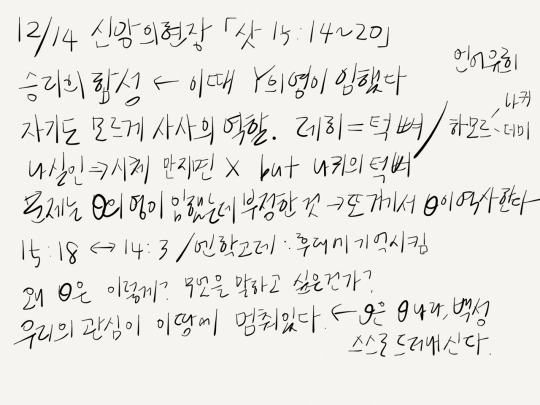 12/14 신앙의현장 「삿 15:14~20」
언어유희
승리의 함성 ← 이때 Y의영이 임했다
자기도 모르게 사사의 역할. 레히=턱뼈 / 하모르 나귀 더미
나실인⇒시체 만지면 X but 나귀의 턱뼈
문제는 θ의 영이 임했는데 부정한 것 → 또 거기서 θ이 역사한다
15:18 ↔ 14:3 / 엔학고레 : 후대에 기억시킴
왜 θ은 이렇게? 무엇을 말하고 싶은건가?
우리의 관심이 이땅에 멈춰있다. ← θ은 θ나라, 백성
스스로 드러내신다.